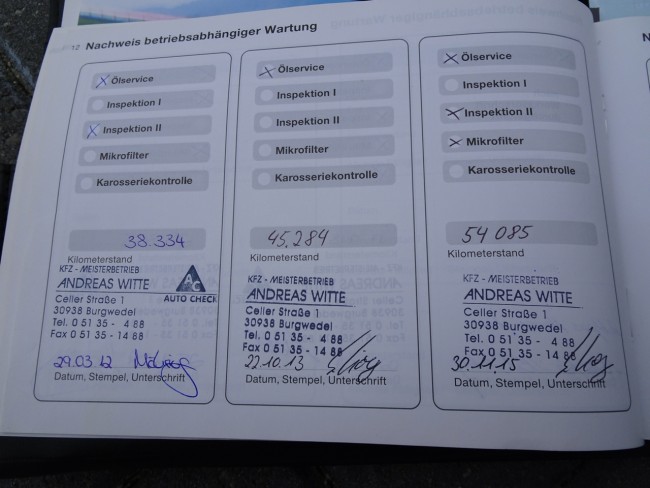 12 Nachweis betriebsabhängiger Wartung
X Ölservice
Inspektion I
X Inspektion II
Mikrofilter
Karosseriekontrolle
38.334
Kilometerstand
KFZ - MEISTERBETRIEB
ANDREAS WITTE
AC
AUTO CHECK
Celler Straße 1
30938 Burgwedel
Tel. 0 51 35 - 4 88
Fax 0 51 35 - 14 88
29.03.12
Datum, Stempel, Unterschrift
X Ölservice
Inspektion I
Inspektion II
Mikrofilter
Karosseriekontrolle
45.284
Kilometerstand
KFZ - MEISTERBETRIEB
ANDREAS WITTE
Celler Straße 1
30938 Burgwedel
Tel. 0 51 35 - 4 88
Fax 0 51 35 - 14 88
22.10.13
Datum, Stempel, Unterschrift
X Ölservice
Inspektion I
X Inspektion II
X Mikrofilter
Karosseriekontrolle
54 085
Kilometerstand
KFZ - MEISTERBETRIEB
ANDREAS WITTE
Celler Straße 1
30938 Burgwedel
Tel. 0 51 35 - 4 88
Fax 0 51 35 - 14 88
30.11.15
Datum, Stempel, Unterschrift